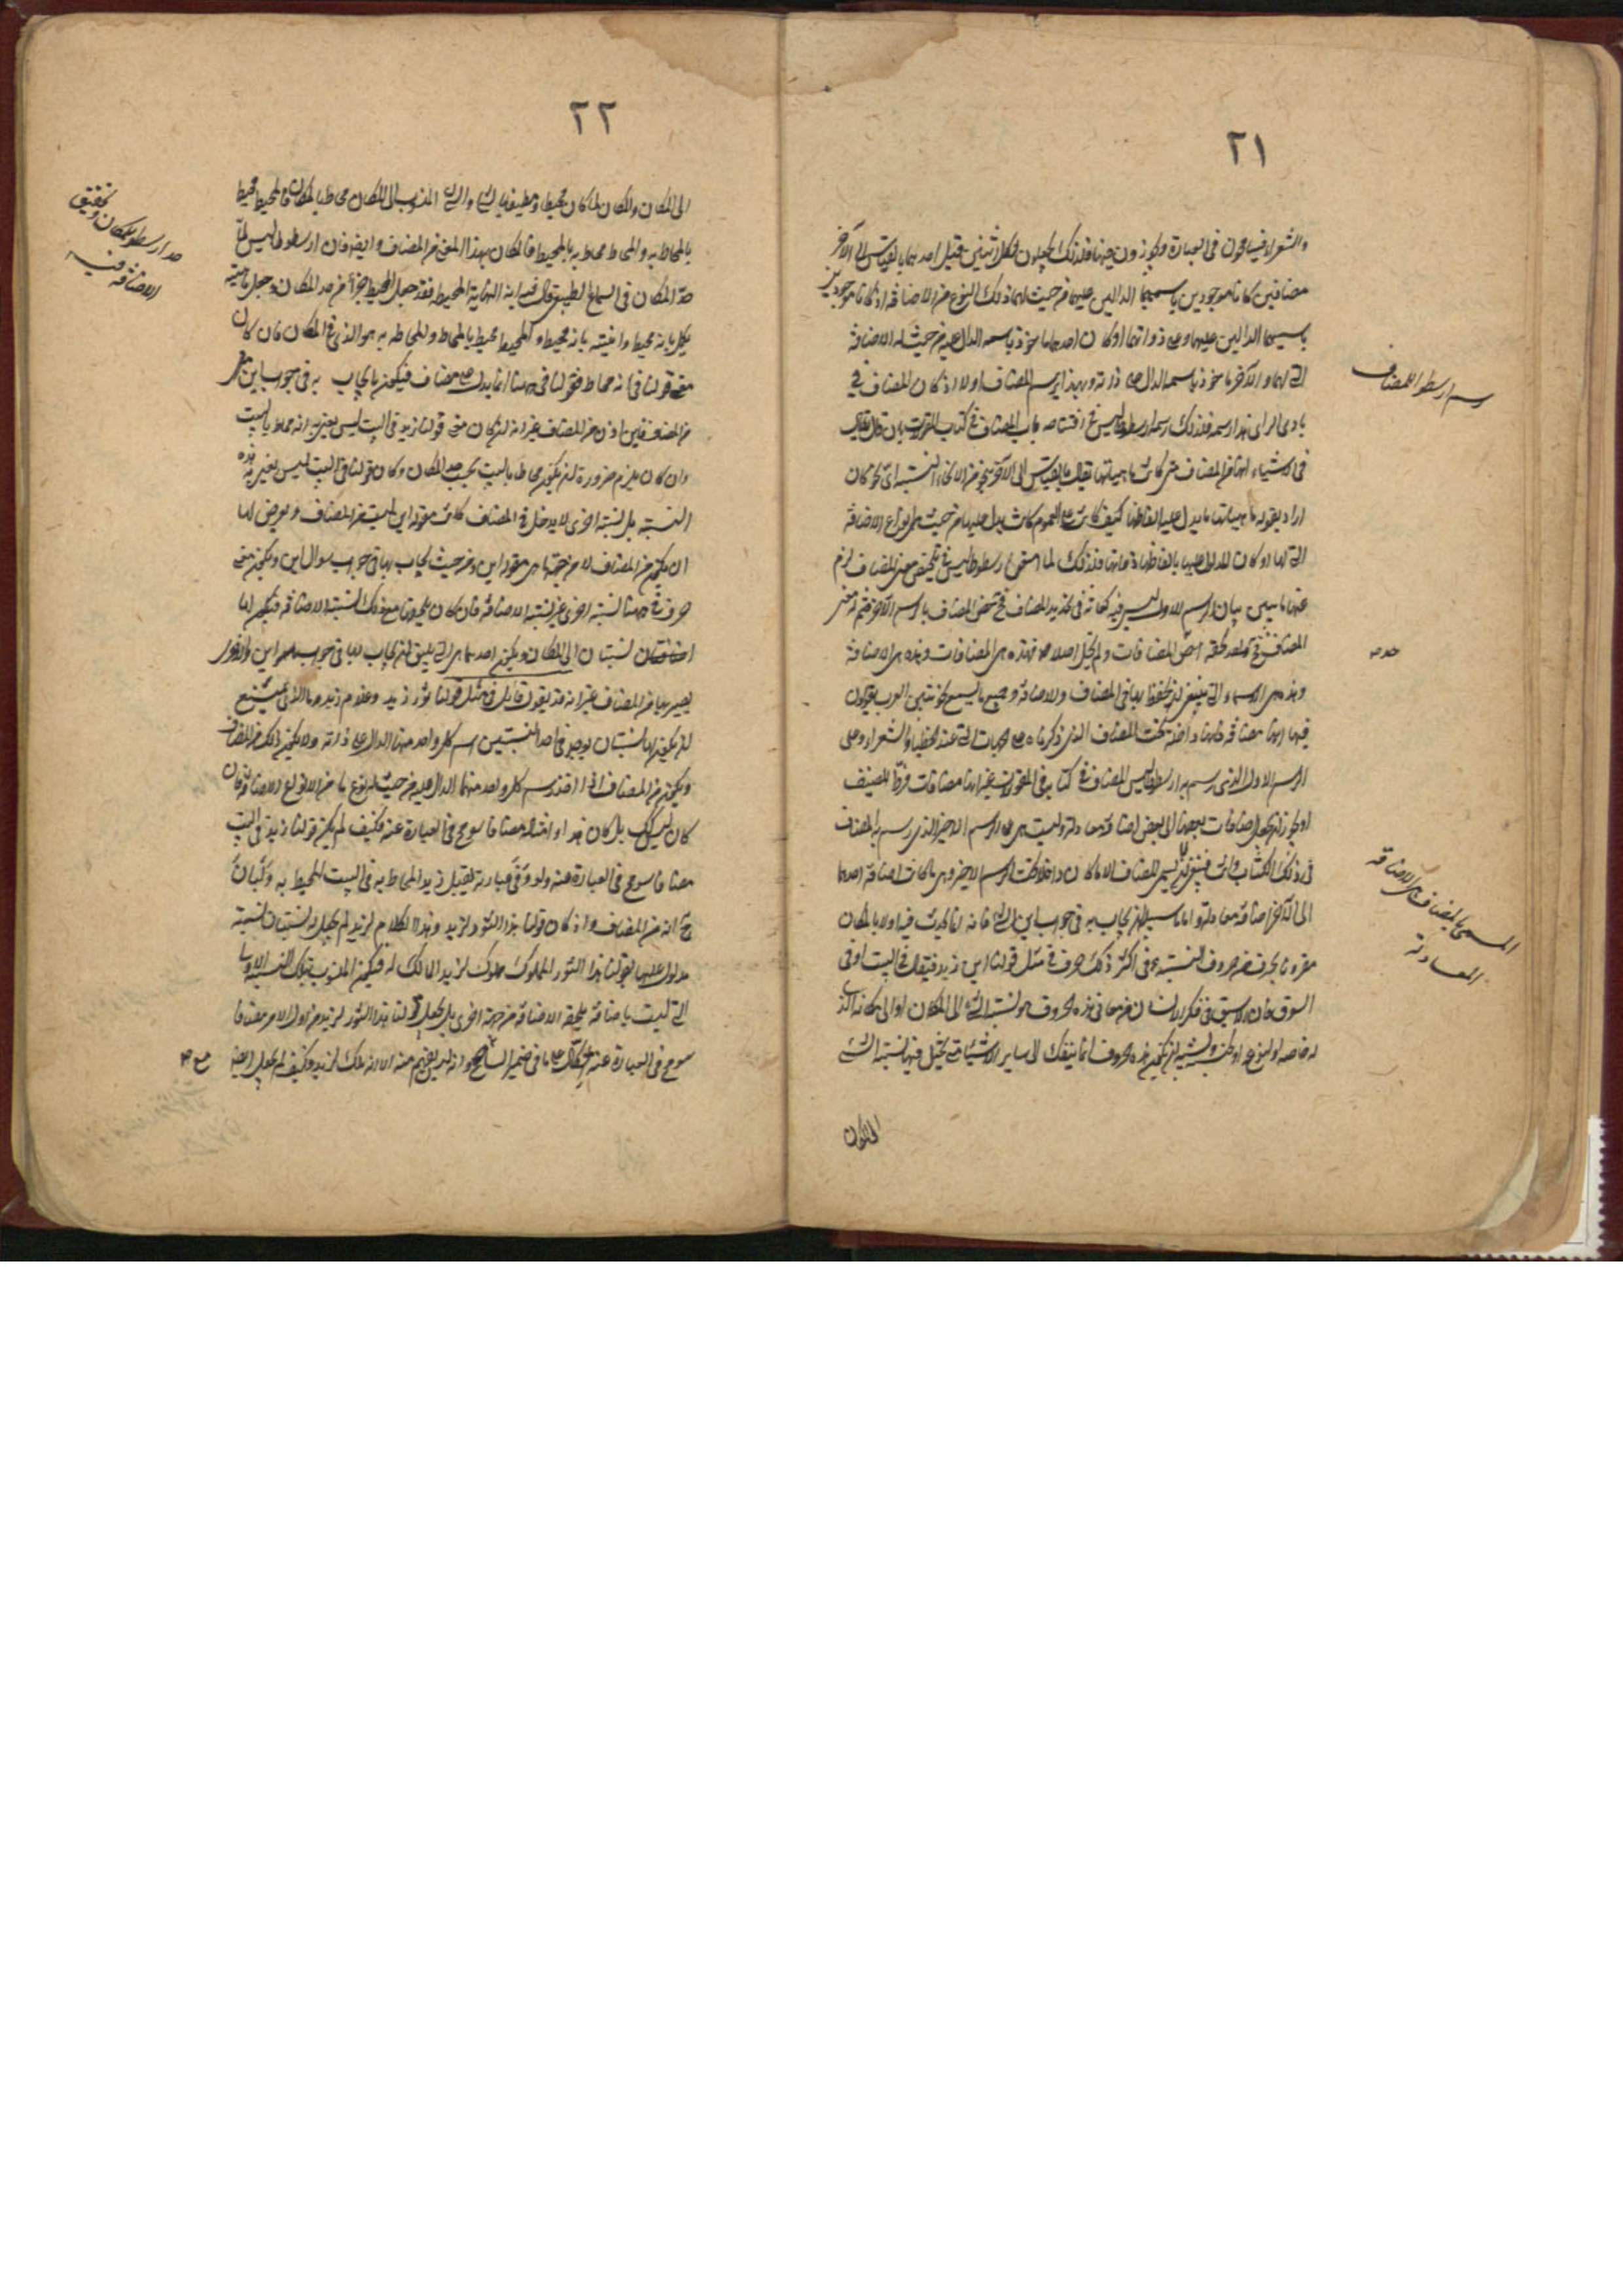 ٢١
والشعراء فيسامحون فى العبارة ويجوزون فيها فلذلك يجعلون لكل اثنين قيل احدهما بالقياس الى الآخر
مضافين كانا موجودين باسميهما الدالين عليهما من حيث لهما ذلك النوع من الاضافة او كانا موجودين
باسميهما الدالين عليهما وعلى ذواتهما او كان احدهما مأخوذ باسمه الدال عليه من حيث له الاضافة
التى لهما والآخر مأخوذ باسمه الدال على ذاته وبهذا يرسم المضاف اولا اذ كان المضاف فى
بادى الراى هذا رسمه فلذلك رسمه ارسطوطاليس فى افتتاحه باب المضاف فى كتاب المقولات بان قال يقال
فى الاشياء انها من المضاف متى كانت ماهياتها تقال بالقياس الى الآخر بنحو من الانحاء النسبة اى نحو كان
اراد بقوله ماهياتها ما يدل عليه الفاظها كيف كانت على العموم كانت يدل عليها من حيث لها نوع الاضافة
التى لها او كان المدلول عليها بالفاظها ذواتها فلذلك لما استمر ارسطوطاليس فى تلخيص معنى المضاف لزم
عنها ما يبين بيان الرسم الاول ليس فيه كفاية فى تحديد المضاف فحص المضاف بالرسم الآخر فتم به معنى
المضاف
وهذه هى الاسماء التى ينبغى ان يحتفظ بها فى المضاف والاضافة وجميع ما يسميه نحويو العرب يقولون
فيها انها مضافة فانها داخلة تحت المضاف الذى ذكرناه على الجهات التى عند الخطباء والشعراء وعلى
الرسم الاول الذى رسم به ارسطوطاليس المضاف فى كتابه فى المقولات غير انها مضافات فرط المصنف
فى ذلك الكتاب وانت فينبغى ان تسمى المضاف الا ما كان داخلا تحت الرسم الاخير وهى ما كانت اضافة احدهما
الى الآخر اضافة معادلة واما ما سبيله ان يجاب به فى جواب اين الشئ فانه انما يجاب فيه اولا بالمكان
مقرونا بحرف من حروف النسبة وفى اكثر ذلك حرف فى مثل قولنا اين زيد فيقال فى البيت او فى
السوق فان الاسبق فى فكر الانسان من معانى هذه الحروف هو نسبة الشئ الى المكان او الى مكانه الذى
له خاصة او لنوعه او لجنسه ويشبه ان تكون هذه الحروف انما ينقل الى سائر الاشياء متى تخيل فيها نسبة الشئ
المكان
رسم ارسطو للمضاف
حد
المسمى بالمضاف هى الاضافة
المعادلة
٢٢
الى المكان والمكان لما كان محيطا ومطيفا بالشئ والشئ المنسوب الى المكان محاط بالمكان فالمحيط محيط
بالمحاط به والمحاط محاط به بالمحيط فالمكان بهذا المعنى من المضاف وايضا فان ارسطوطاليس لما
حدّ المكان فى السماع الطبيعى قال فيه انه النهاية المحيط فقد جعل المحيط جزءا من حد المكان وجعل ماهيته
تكمل بانه محيط وانيته بانه محيط والمحيط محيط بالمحاط والمحاط به هو الذى فى المكان فان كان
معنى قولنا فى انه محاط فقولنا فى ههنا انما يدل على مضاف فيكون ما يجاب به فى جواب اين
من المضاف فاين اذن من المضاف غير انه ان كان معنى قولنا زيد فى البيت ليس نعنى به انه محاط بالبيت
وان كان يلزم ضرورة ان يكون محاطا بالبيت بحسب حد المكان وكان قولنا فى البيت ليس نعنى به هذه
النسبة بل نسبة اخرى لا يدخل فى المضاف كانت مقولة اين ليست من المضاف ويعرض لها
ان يكون من المضاف لا من جهة ما هى مقولة اين ومن حيث يجاب بها فى جواب سؤال اين ويكون معنى
حرف فى ههنا نسبة اخرى غير نسبة الاضافة فان كان يلحقها مع ذلك نسبة الاضافة فتكون لها
نسبتان الى المكان ويكون احدهما هى التى يليق ان يجاب بها فى جواب اين والاخرى
يصير بها من المضاف غير انه قد يقول قائل فى مثل قولنا ثور زيد وغلام زيد وما الذى يمنع
ان يكون لها نسبتان يوجد فى احد النسبتين اسم كل واحد منهما الدال على ذاته ولا يكون ذلك من المضاف
ويكون من المضاف اذا اخذ رسم كل واحد منهما الدال عليه من حيث له نوع ما من الانواع الاضافة فان
كان ليس كذلك بل كان هذا وامثاله مضافا سومح فى العبارة عنه فكيف لم يكن قولنا زيد فى البيت
مضافا سومح فى العبارة عنه ولو وفى عبارته لقيل زيد المحاط به فى البيت المحيط به وكان
انه من المضاف واذ كان قولنا هذا الثور لزيد وهذا الكلام لزيد لم يجعل له نسبتان نسبة
مدلول عليها بقولنا هذا الثور المملوك مملوك لزيد المالك له فيكون المنسوب بتلك النسبة الاولى
التى ليست باضافة يلحقه الاضافة من جهة اخرى بل يجعل قولنا هذا الثور لزيد من اول الامر مضافا
سومح فى العبارة عنه اتكالا على ما فى ضمير السامع وانه ليس يفهم منه الا انه ملك لزيد وكيف لم يجعل ايضا
حد ارسطو للمكان وتحقيق
الاضافة فيه